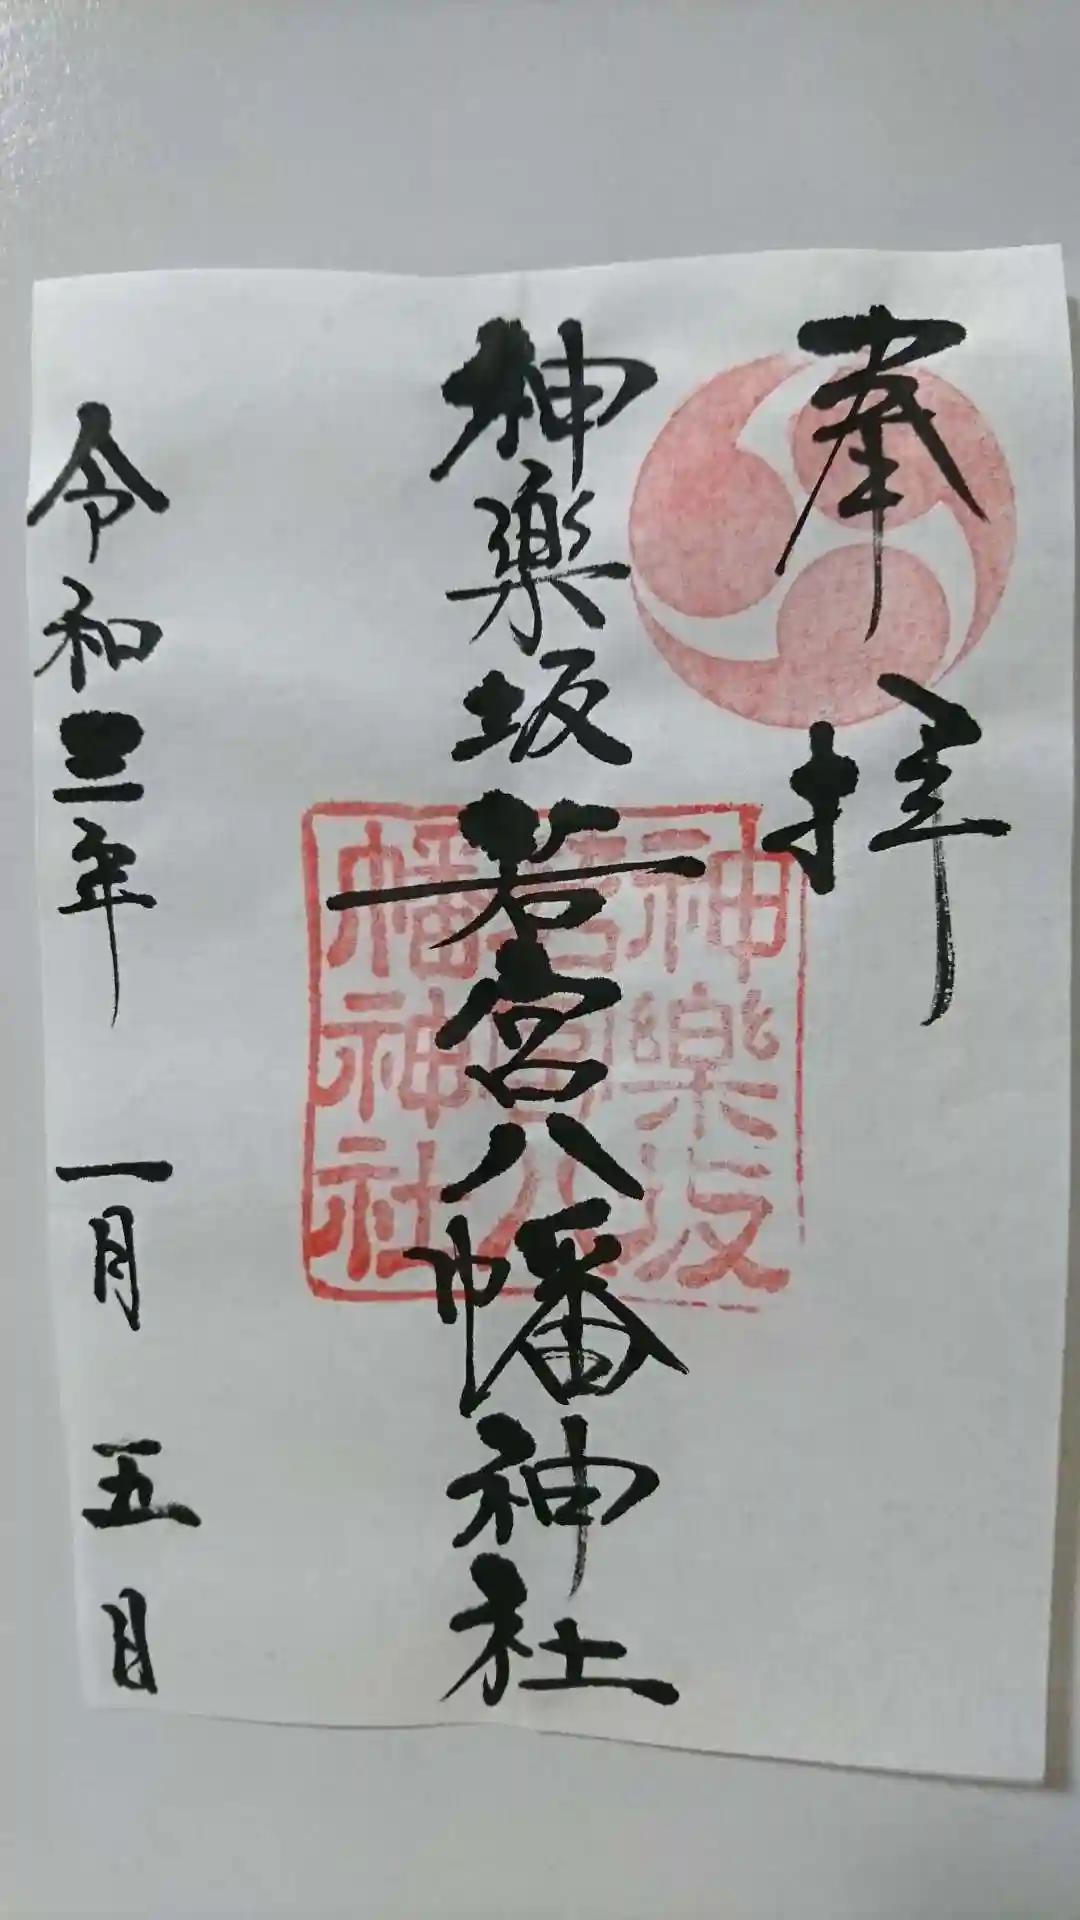 奉拝
神楽坂若宮八幡神社
神樂坂
若宮八
幡神社
令和三年 一月 五日